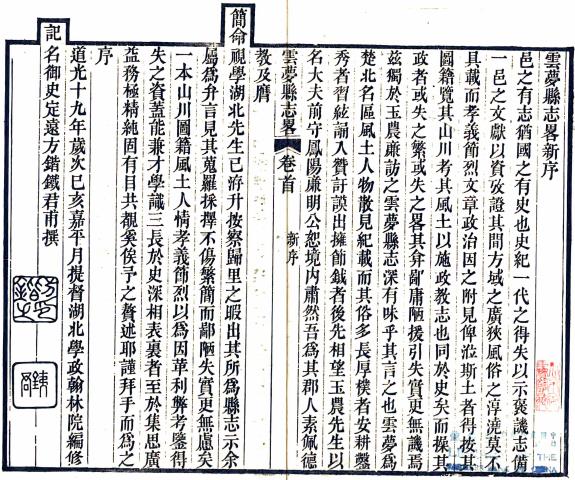 雲夢縣志畧新序
邑之有志猶國之有史也史紀一代之得失以示褒譏志備
一邑之文獻以資攷證其間方域之廣狹風俗之淳澆莫不
具載而孝義節烈文章政治因之附見俾涖斯土者得按其
圖籍覽其山川考其風土以施政教志也同於史矣而操其
政者或失之繁或失之畧其弇鄙庸陋援引失實更無譏焉
茲獨於玉農廉訪之雲夢縣志深有味乎其言之也雲夢爲
楚北名區風土人物散見紀載而其俗多長厚樸者安耕鑿
秀者習絃誦入贊訏謨出擁節鉞者後先相望玉農先生以
名大夫前守鳳陽廉明公恕境內肅然吾爲其郡人素佩德
雲夢縣志畧 卷首 新序
教及膺
簡命視學湖北先生已洊升按察歸里之暇出其所爲縣志示余
屬爲弁言見其蒐羅採擇不傷繁簡而鄙陋失實更無慮矣
一本山川圖籍風土人情孝義節烈以爲因革利弊考鑒得
失之資蓋能兼才學識三長於史深相表裏者至於集思廣
益務極精純固有目共覩奚俟予之贅述耶謹拜手而爲之
序
道光十九年歲次己亥嘉平月提督湖北學政翰林院編修
記名御史定遠方鍇鐵君甫撰